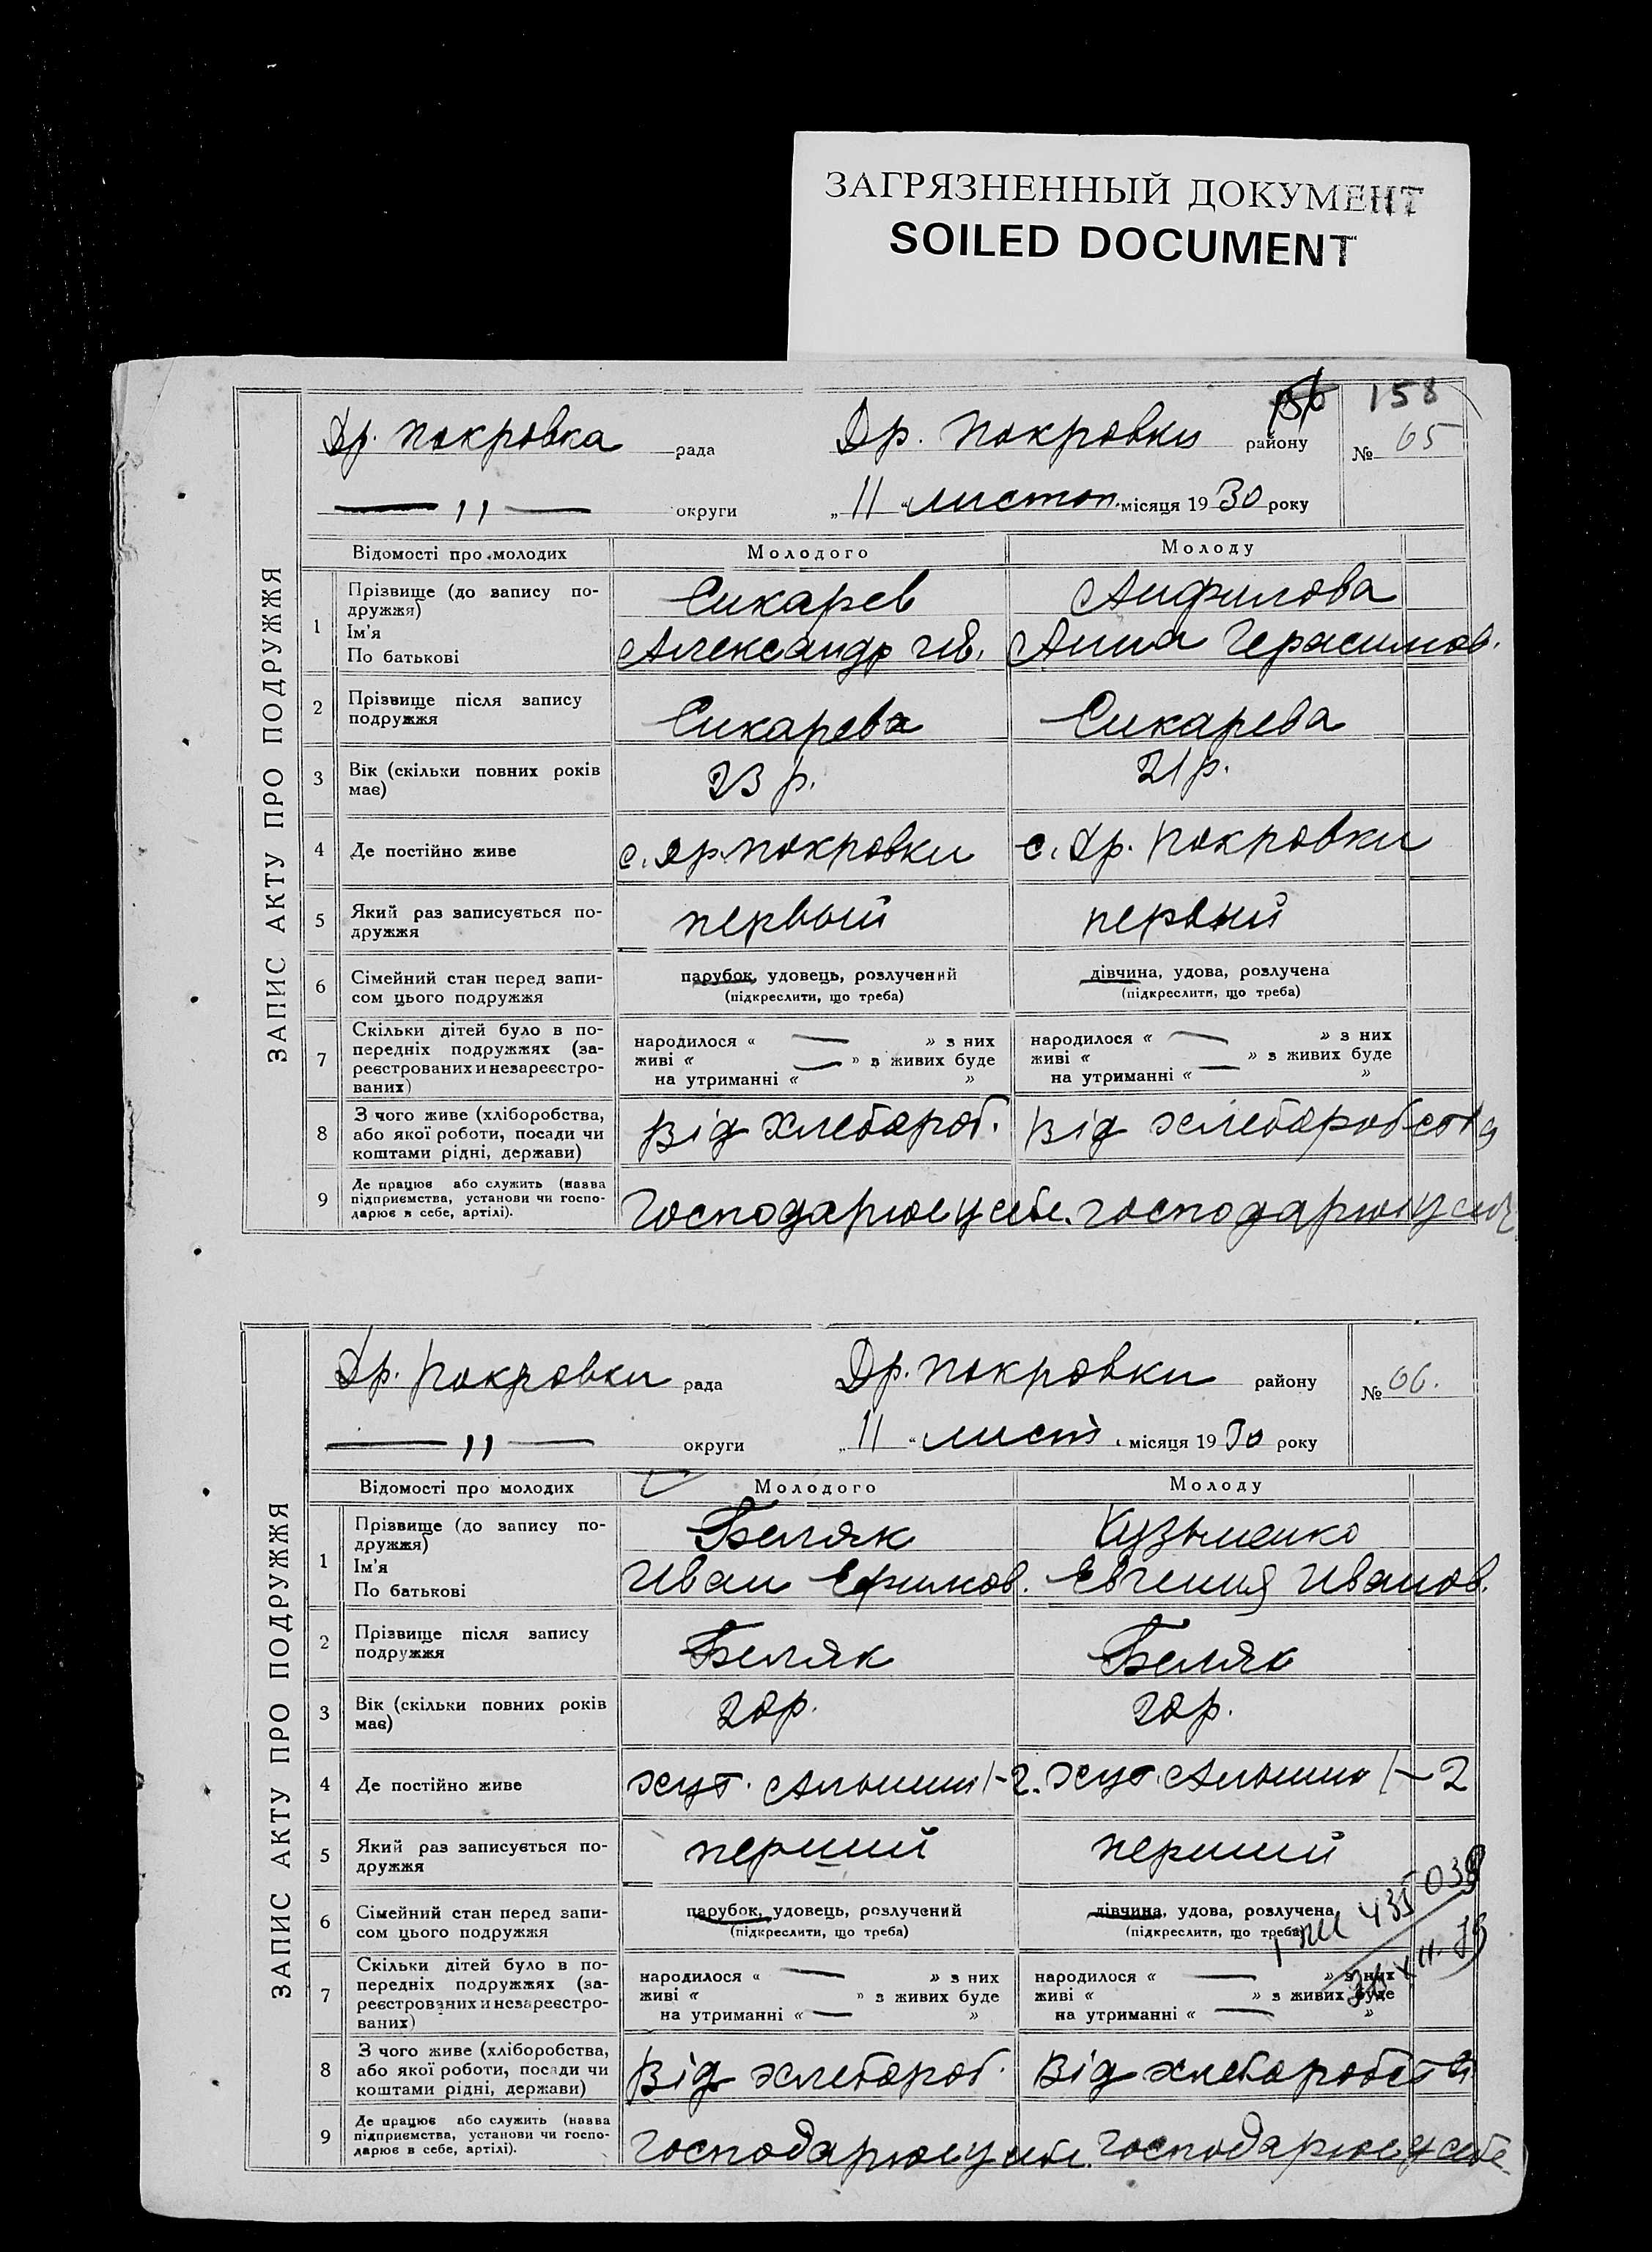 ЗАГРЯЗНЕННЫЙ ДОКУМЕНТ
SOILED DOCUMENT
158
ЗАПИС АКТУ ПРО ПОДРУЖЖЯ
Др. Покровка рада Др. Покровки району № 65
— „ — округи „11“ листоп. місяця 1930 року
Відомості про молодих Молодого Молоду
1 Прізвище (до запису по-
дружжя) Сикарев Анфилова
Ім'я
По батькові Александр Ив. Анна Герасимов.
2 Прізвище після запису
подружжя Сикарева Сикарева
3 Вік (скільки повних років
має) 23 р. 21 р.
4 Де постійно живе с. Др. Покровки с. Др. Покровки
5 Який раз записується по-
дружжя первый первый
6 Сімейний стан перед запи-
сом цього подружжя парубок, удовець, розлучений дівчина, удова, розлучена
(підкреслити, що треба) (підкреслити, що треба)
7 Скільки дітей було в по-
передніх подружжях (за-
реєстрованих и незареєстро-
ваних)
народилося « — » з них народилося « — » з них
живі « — » з живих буде живі « — » з живих буде
на утриманні « » на утриманні « »
8 З чого живе (хліборобства,
або якої роботи, посади чи
коштами рідні, держави) Від хлебароб. Від хлебаробства
9 Де працює або служить (назва
підприємства, установи чи госпо-
дарює в себе, артілі). Господарює у себе. господарює у себе
ЗАПИС АКТУ ПРО ПОДРУЖЖЯ
Др. Покровки рада Др. Покровки району № 66.
— „ — округи „11“ лист. місяця 1930 року
Відомості про молодих Молодого Молоду
1 Прізвище (до запису по-
дружжя) Беляк Кузьменко
Ім'я
По батькові Иван Ефимов. Евгения Иванов.
2 Прізвище після запису
подружжя Беляк Беляк
3 Вік (скільки повних років
має) 20р. 20р.
4 Де постійно живе хут. 1-2. хут. 1-2
5 Який раз записується по-
дружжя перший перший
6 Сімейний стан перед запи-
сом цього подружжя парубок, удовець, розлучений дівчина, удова, розлучена
(підкреслити, що треба) (підкреслити, що треба)
7 Скільки дітей було в по-
передніх подружжях (за-
реєстрованих и незареєстро-
ваних)
народилося « — » з них народилося « — » з них
живі « » з живих буде живі « » з живих буде
на утриманні « — » на утриманні « — »
8 З чого живе (хліборобства,
або якої роботи, посади чи
коштами рідні, держави) Від хлебароб. Від хлебаробств
9 Де працює або служить (назва
підприємства, установи чи госпо-
дарює в себе, артілі). Господарює у себе. Господарює у себе